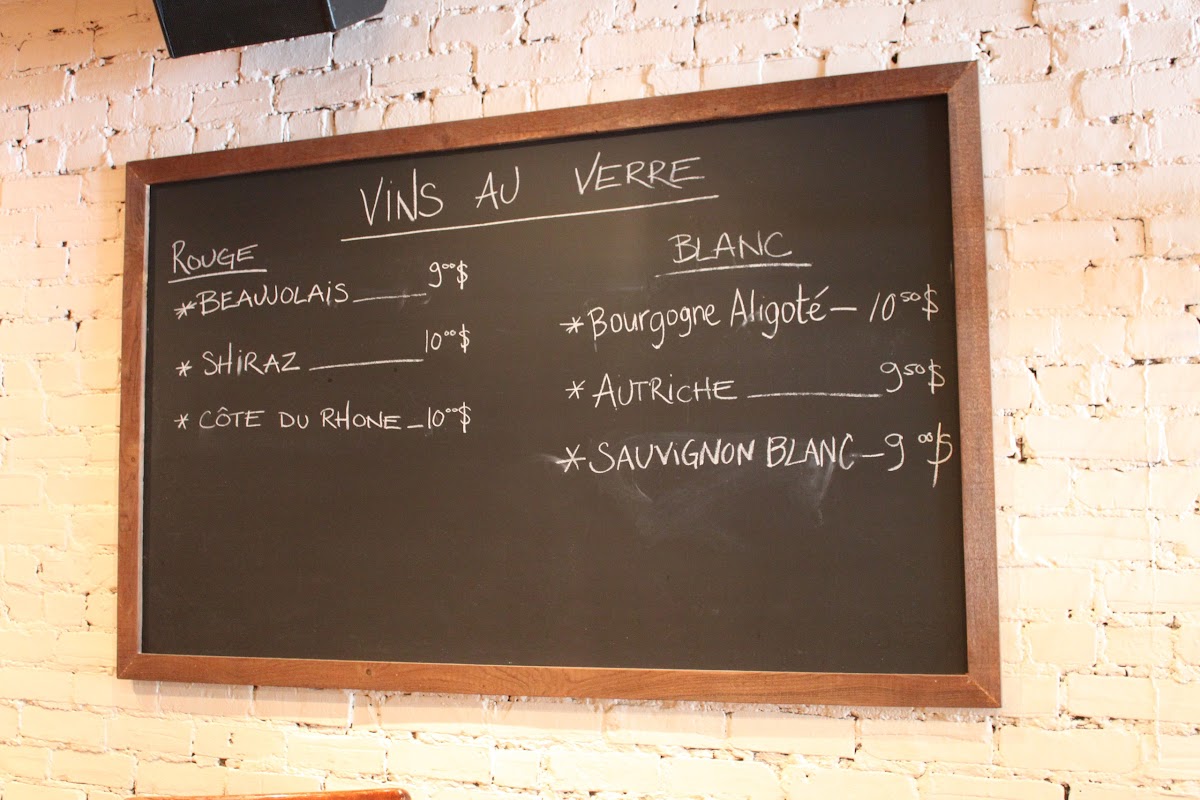 VINS AU VERRE
ROUGE
*BEAUJOLAIS 9⁰⁰$
* SHIRAZ 10⁰⁰$
* CÔTE DU RHONE 10⁰⁰$
BLANC
*Bourgogne Aligoté – 10⁵⁰$
* AUTRICHE 9⁵⁰$
*SAUVIGNON BLANC – 9⁰⁰$